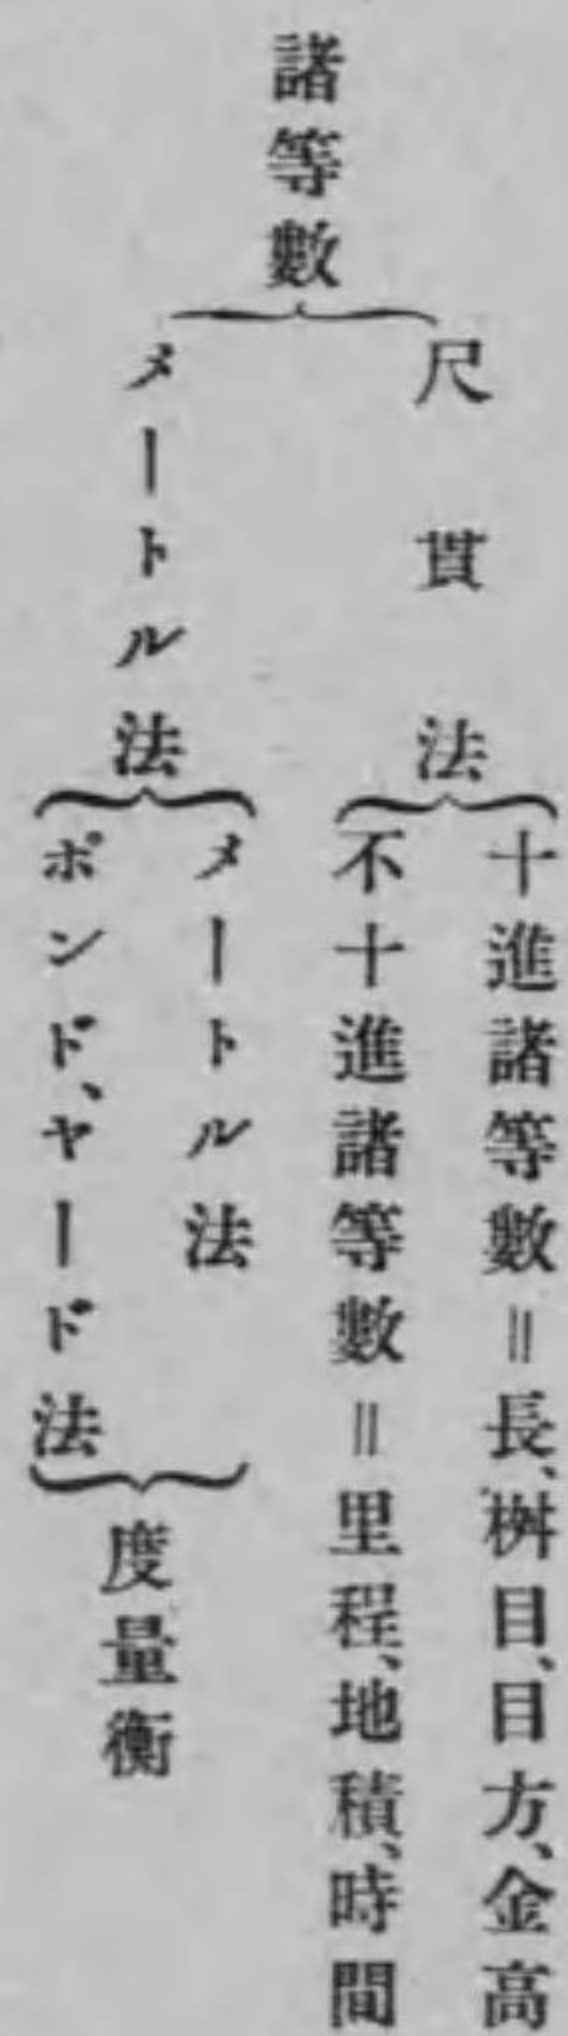 諸等數
尺貫法
十進諸等數＝長、桝目、目方、金高
不十進諸等數＝里程、地積、時間
メートル法
メートル法
ポンド、ヤード法
度量衡